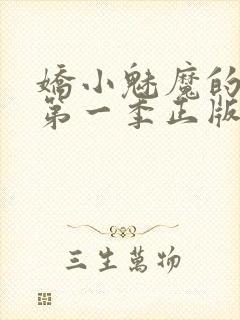 嬌小魅魔的
第一季正版
三生萬物